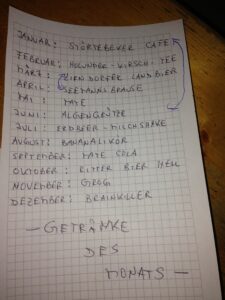 JANUAR: STÖRTEBEKER CAFE
FEBRUAR: HOLUNDER-KIRSCH-TEE
MÄRZ: LANDBIER
APRIL: SEEMANNSBRAUSE
MAI: MATE
JUNI: ALGENGRÜTZE
JULI: ERDBEER-MILCHSHAKE
AUGUST: BANANALIKÖR
SEPTEMBER: MATE COLA
OKTOBER: RITTER BIER HELL
NOVEMBER: GROG
DEZEMBER: BRAINKILLER
- GETRÄNKE
DES
MONATS -